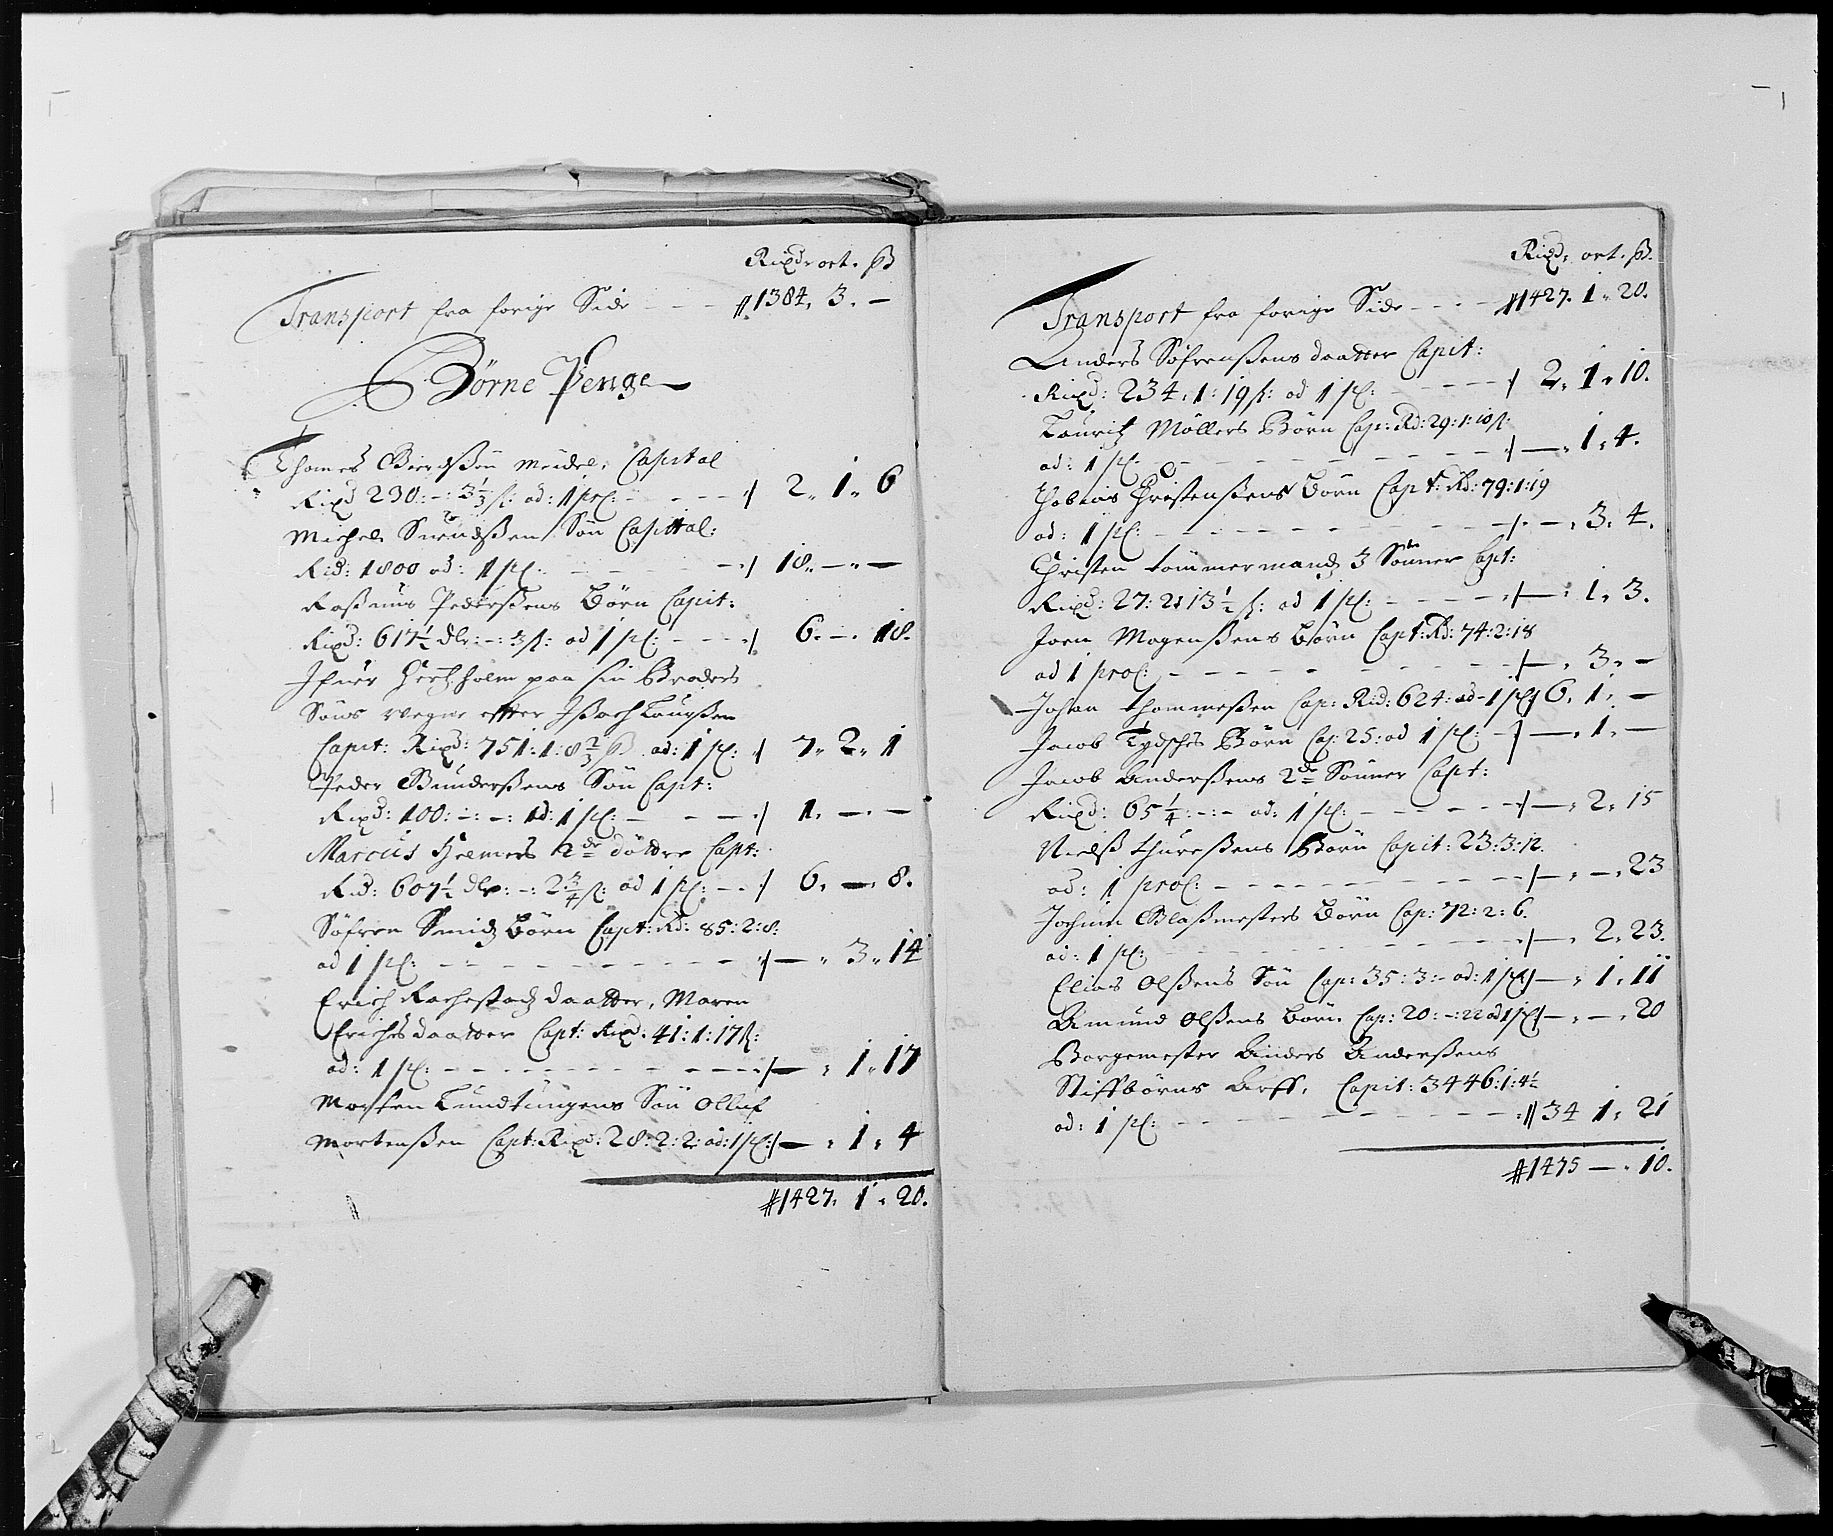 Rixd: ort. ß
Transport fra forige Side - - - #1384. 3. -
Børne Penge
Thomes Meidel. Capital
Rixd 230: -: 3 1/3 ß: ad: 1 proC: - - - - 2. 1. 6
Michel Søn Capittal:
Rid: 1800 ad: 1 pC: - - - 18. - . -
Rasmus Pedersens Børn Capit:
Rixd: 617½ dlr: -: ß: ad 1 pC: - - - 6. - . 18.
Ifuer paa sin Broders
Søns Vegne effter Laurssen
Capit: Rixd: 751: 1: 8 2/3 ß ad: 1 pC: 7. 2. 1
Peder Gundersens Søn Capt:
Rixd: 100: -: -: ad: 1 pC: - - - 1. - . -
Marcus Helmers 2de døttre Capt:
Rid: 607½ dlr: -: 2 3/4 ß: ad 1 pC: - - 6. - . 8.
Søfren Smids Børn Capt: Rd: 85: 2: 8.
ad 1 pC: - - - - - - - - . 3. 14
Erich daatter, Maren
Erichsdaatter Capt: Rixd. 41: 1: 17 ß:
ad: 1 pC: - - - - - - - - . 1. 17
Morten Lundtingens Søn Olluf
Mortensen Capt: Rixd: 28: 2: 2: ad: 1 pC: - . 1. 4
#1427. 1. 20.
Rixd: ort. ß.
Transport fra forige Side - - - - #1427. 1. 20.
Anders Søfrensens daatter Capit:
Rixd: 234: 1: 19 ß: ad 1 pC: - - - - 2. 1. 10.
Lauritz Møllers Børn Cap: Rd: 29: 1: 10 ß:
ad: 1 pC - - - - - - - - . 1. 4.
Tobias Christensens Børn Capt: Rd: 79: 1: 19
ad: 1 pC: - - - - - - - - . 3. 4.
Christen tømmermands 3 Sønner Capt:
Rixd: 27: 2: 13½ ß: ad 1 pC: - - - - : 1. 3.
Joen Mogensens Børn Capt: Rd: 74: 2: 18
ad 1 proC: - - - - - - - . 3. -
Johan Thommesen Cap: Rid: 624: ad - 1 pC 6. 1. -
Jacob Tydsches Børn Cap: 25: ad 1 pC: - - . 1. -
Jacob Andersens 2de Sønner Capt:
Rixd: 65¼: -: - ad: 1 pC: - - - - - : 2. 15
Nielss thuresens Børn Capit: 23: 3: 12.
ad: 1 proC: - - - - - - - - . - . 23
Jochum Glassmesters Børn Cap: 72: 2: 6.
ad: 1 pC: - - - - - - - . 2. 23.
Elias Olsens Søn Cap: 35: 3: - ad: 1 pC - . 1. 11
Amund Olsens Børn Cap: 20: -: 22 ad 1 pC - . - . 20
Borgemester Anders Andersens
Stiffbørns Arff, Capit: 3446: 1: 4½
ad: 1 pC: - - - - - - - # 34 1. 21
#1475 - . 10.